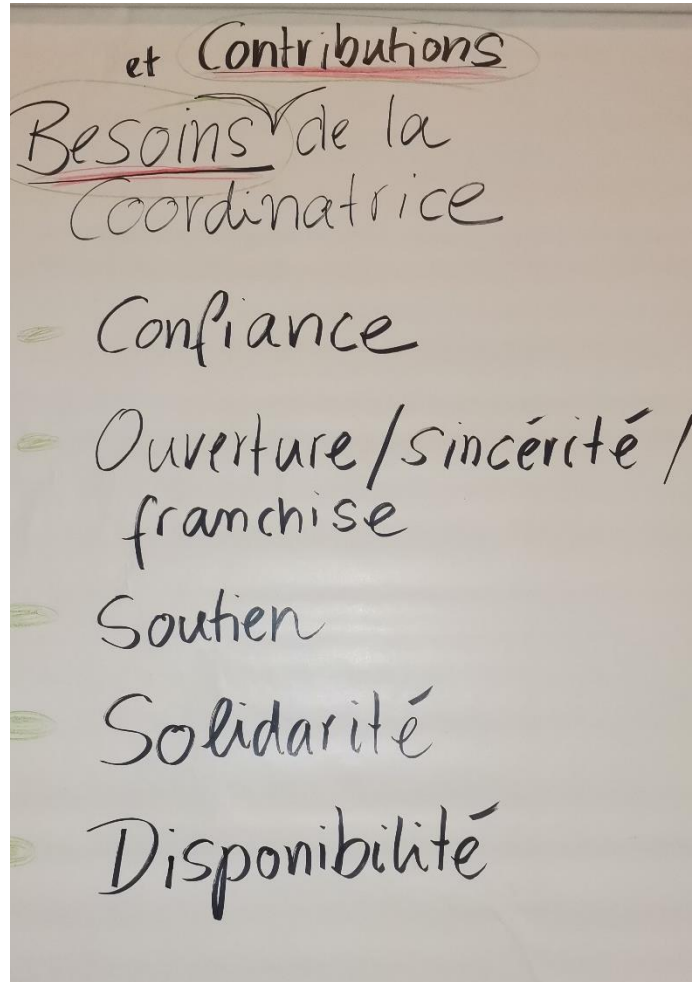 et Contributions
Besoins de la
Coordinatrice
Confiance
Ouverture/sincérité/
franchise
Soutien
Solidarité
Disponibilité